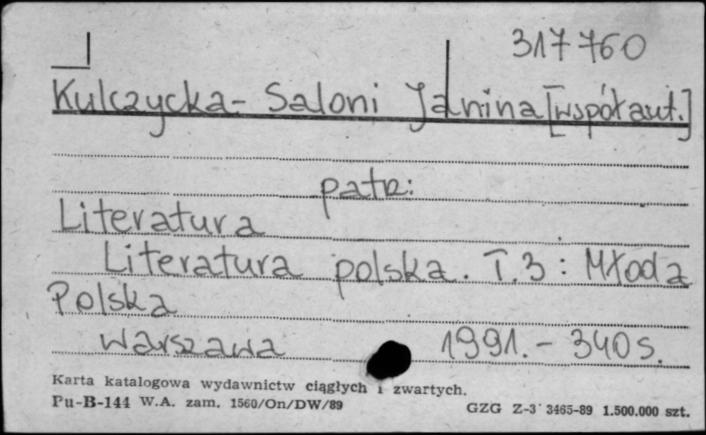 317 760
Kulczycka-Saloni Janina [współaut.]
patrz:
Literatura
Literatura polska. T.3 : Młoda
Polska
Warszawa 1991.- 340 s.
Karta katalogowa wydawnictw ciągłych i zwartych.
Pu-B-144 W.A. zam. 1560/On/DW/89
GZG Z-3 3465-89 1.500.000 szt.